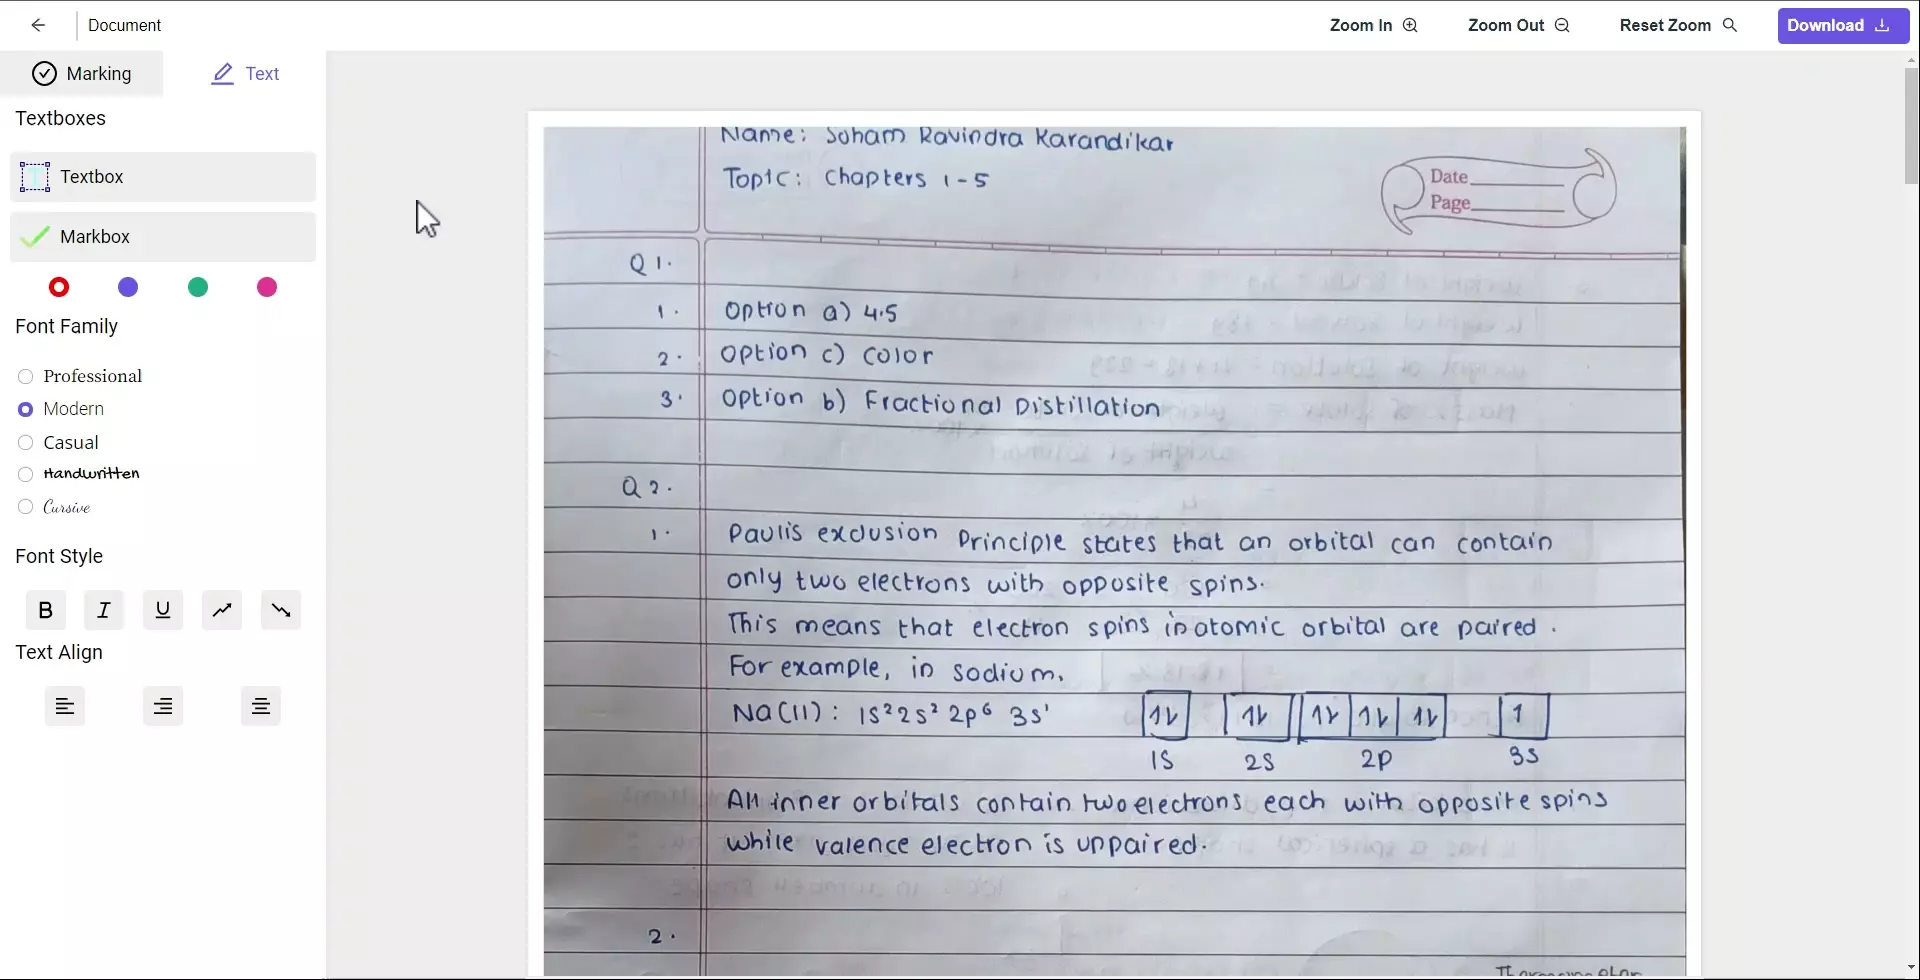 Document
Zoom In
Zoom Out
Reset Zoom
Download
Marking
Text
Textboxes
Textbox
Markbox
Font Family
Professional
Modern
Casual
Handwritten
Cursive
Font Style
B I U
Text Align
Name: Soham Ravindra Karandikar
Topic: Chapters 1-5
Date
Page
Q 1.
1. Option a) 4.5
2. Option c) Color
3. Option b) Fractional Distillation
Q 2.
1. Paulis exclusion Principle states that an orbital can contain
only two electrons with opposite spins.
This means that electron spins in atomic orbital are paired.
For example, in sodium,
Na(11): 1s² 2s² 2p⁶ 3s¹ 1↿⇂
1S 2S 2P 3S
All inner orbitals contain two electrons each with opposite spins
while valence electron is unpaired.
2.